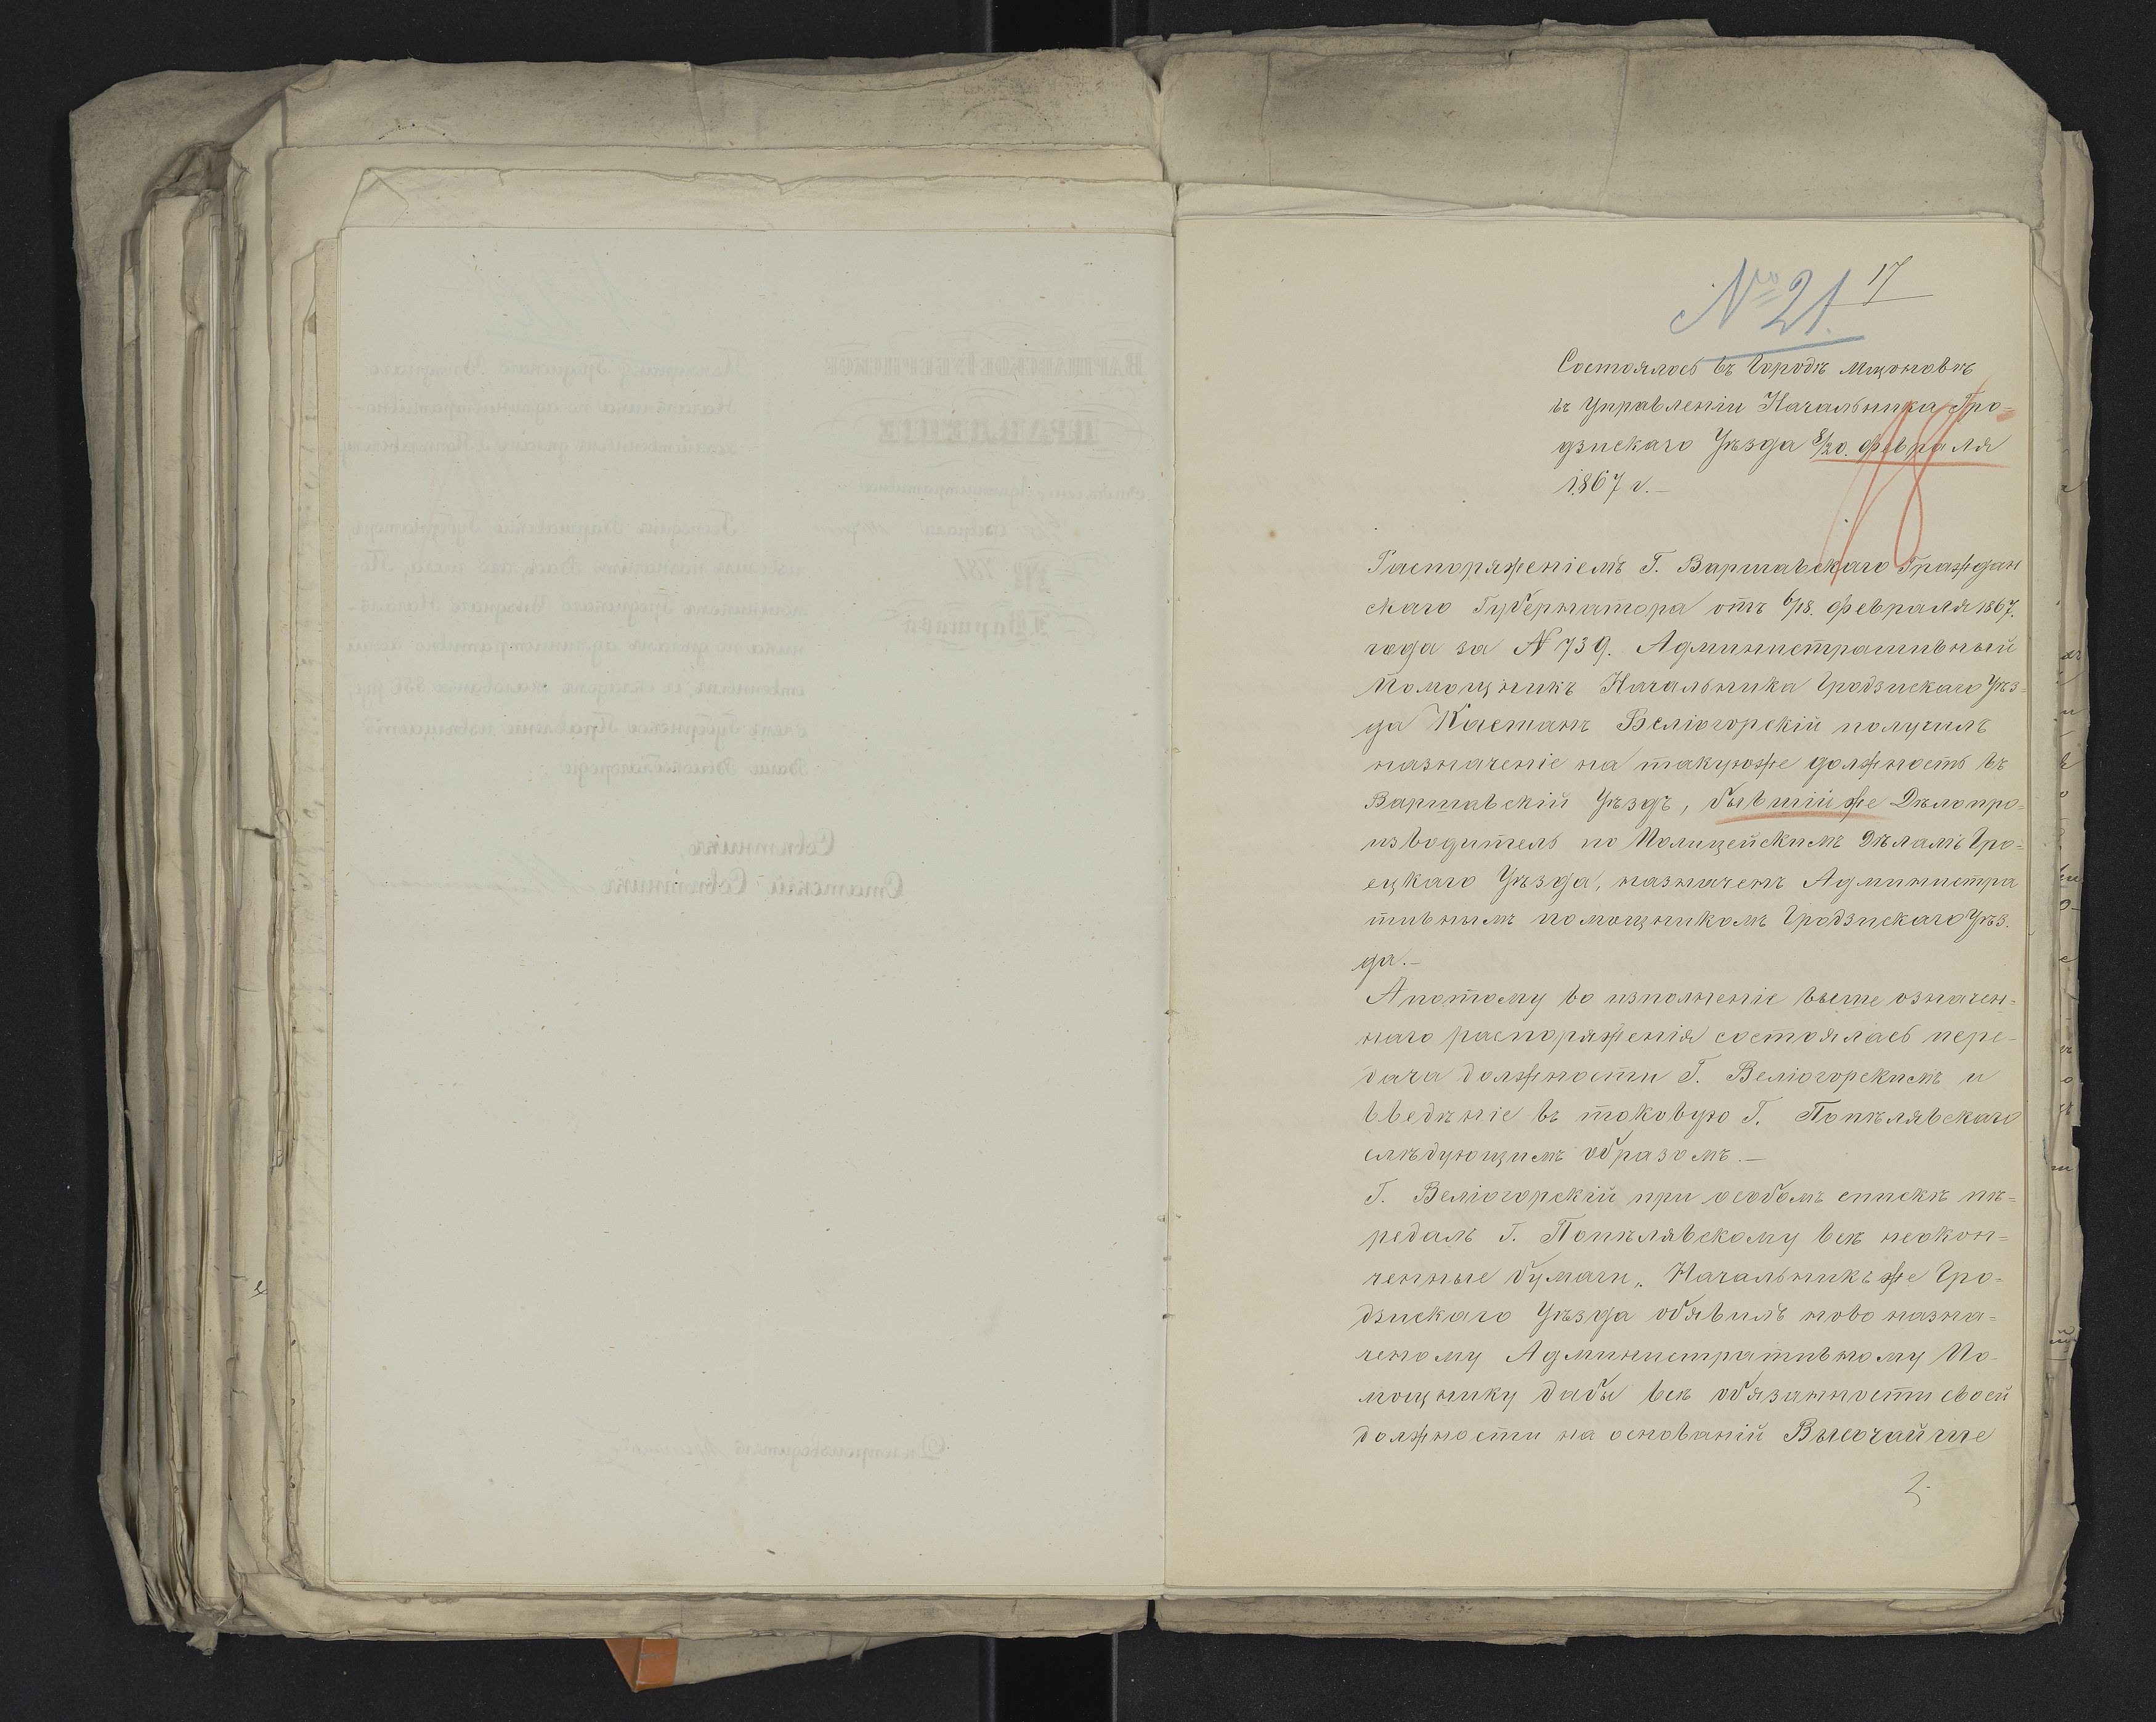 № 21. 17
Состоялось въ Городѣ Мщоновѣ
въ Управленіи Начальника Гро-
дзискаго Уѣзда 8/20. февраля
1867 г.—
Распоряженіемъ Г. Варшавскаго Граждан
скаго Губернатора отъ 6/18. февраля 1867.
года за № 739. Административный
Помощникъ Начальника Гродзискаго Уѣз-
да Каетанъ Веліогорскій получилъ
назначеніе на такуюже должность въ
Варшавскій Уѣздъ, бывшій же Дѣлопро-
изводитель по Полицейскимъ Дѣламъ Гро-
ецкаго Уѣзда, назначенъ Администра
тивнымъ помощникомъ Гродзискаго Уѣз.
да.—
А потому во исполненіе выше означен-
наго распоряженія состоялась пере-
дача должности Г. Веліогорскимъ и
введѣніе въ таковую Г. Попѣлявскаго
слѣдующимъ образомъ.—
Г. Веліогорскій при особомъ спискѣ пѣ-
редалъ Г. Попѣлявскому всѣ неокон-
ченные бумаги, Начальникъ же Гро-
дзискаго Уѣзда объявилъ ново назна-
ченому Административному По-
мощнику дабы всѣ обязанности своей
должности на основаній Высочайше
2.